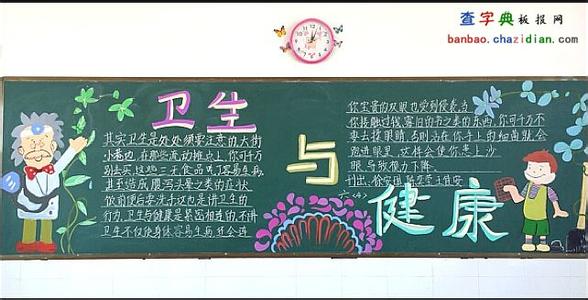 查字典板报网
banbao.chazidian.com
卫生
其实卫生是处处须要注意的大街
小巷边,有那些流动摊点上,你可千万
别去买,这些三无食品,叫了容易生病
甚至造成腹泻头晕之类的症状
饭前便后要洗手这也是讲卫生的
行为,卫生与健康是紧密相连的不讲
卫生不仅使身体容易生病还会连
与
你宝贵的双眼也受到侵袭当
你接触过钱、霉旧的书之类的东西,你可千万不
要去揉眼睛,否则沾在你手上的细菌就会
跑进眼里,这样会使你患上沙
眼,导致视力下降。
刊出:
六〈4〉
健康